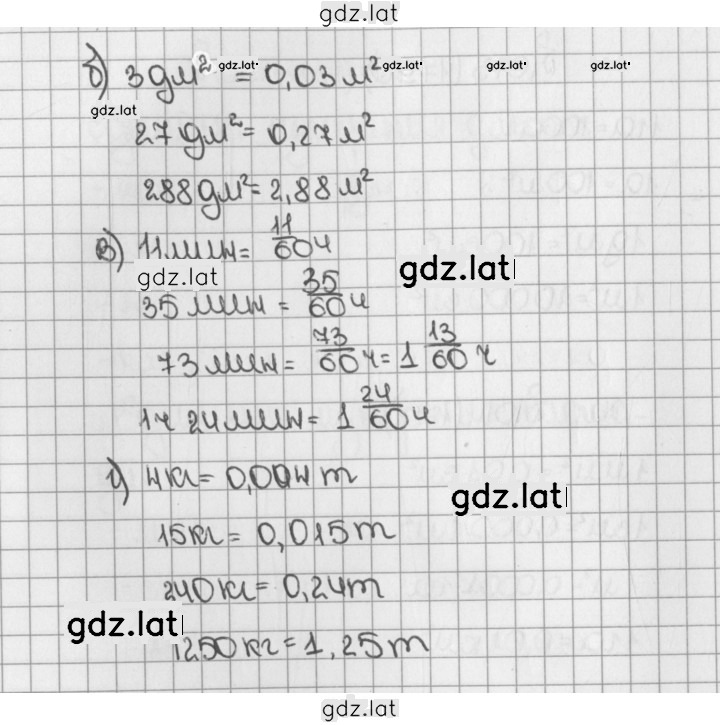 gdz.lat
б) 3 дм² gdz.lat = 0,03 м² gdz.lat gdz.lat gdz.lat
gdz.lat
27 дм² = 0,27 м²
288 дм² = 2,88 м²
в) 11 мин = 11/60 ч
gdz.lat gdz.lat
35 мин = 35/60 ч
73 мин = 73/60 ч = 1 13/60 ч
1 ч 24 мин = 1 24/60 ч
г) 4 кг = 0,004 т
gdz.lat
15 кг = 0,015 т
240 кг = 0,24 т
gdz.lat
1250 кг = 1,25 т
gdz.lat